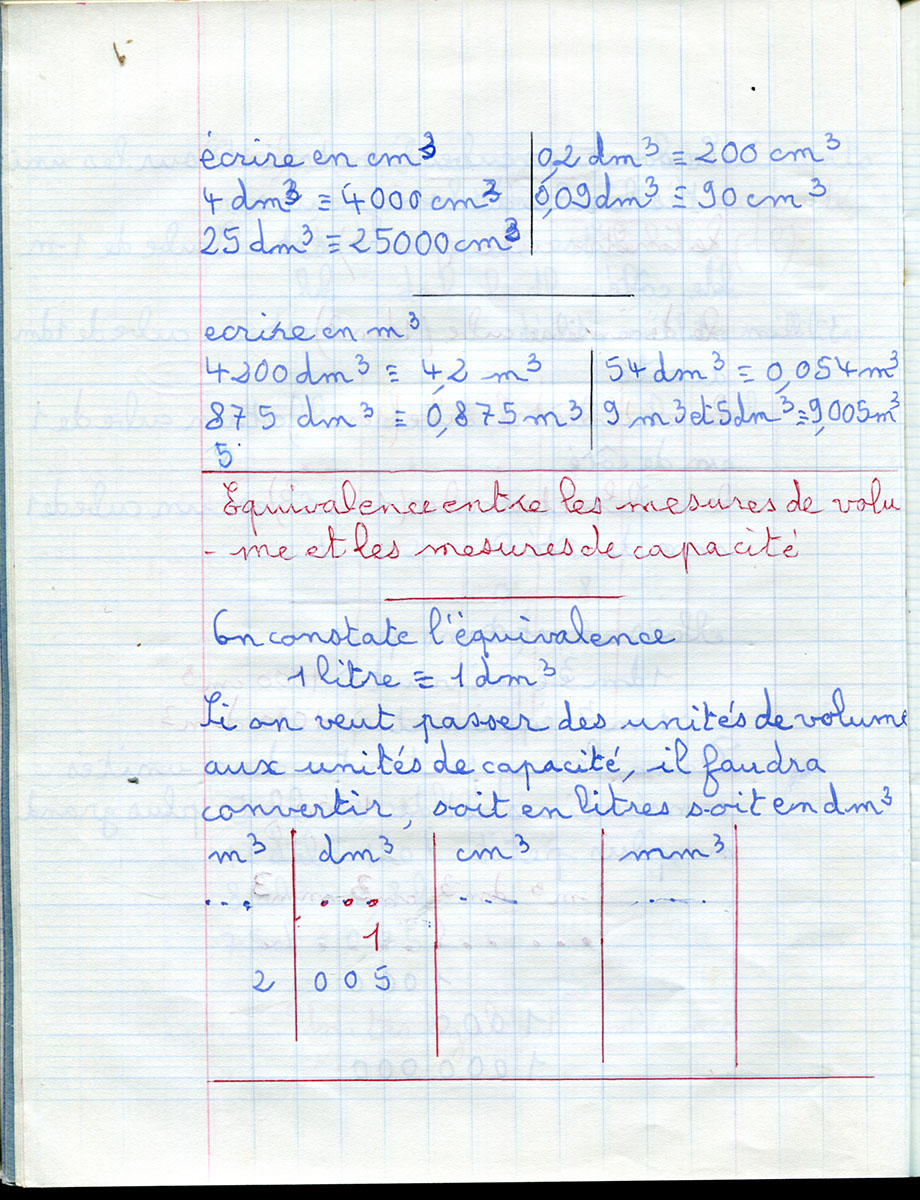 écrire en cm³ | 0,2 dm³ = 200 cm³
4 dm³ = 4000 cm³ | 0,09 dm³ = 90 cm³
25 dm³ = 25000 cm³
ecrire en m³
4200 dm³ = 4,2 m³ | 54 dm³ = 0,054 m³
875 dm³ = 0,875 m³ | 9 m³ et 5 dm³ = 9,005 m³
5
Equivalence entre les mesures de volu
- me et les mesures de capacité
On constate l'équivalence
1 litre = 1 dm³
Si on veut passer des unités de volume
aux unités de capacité, il faudra
convertir, soit en litres soit en dm³
m³ | dm³ | cm³ | mm³
... | ... | ... | ...
1
2 | 0 0 5